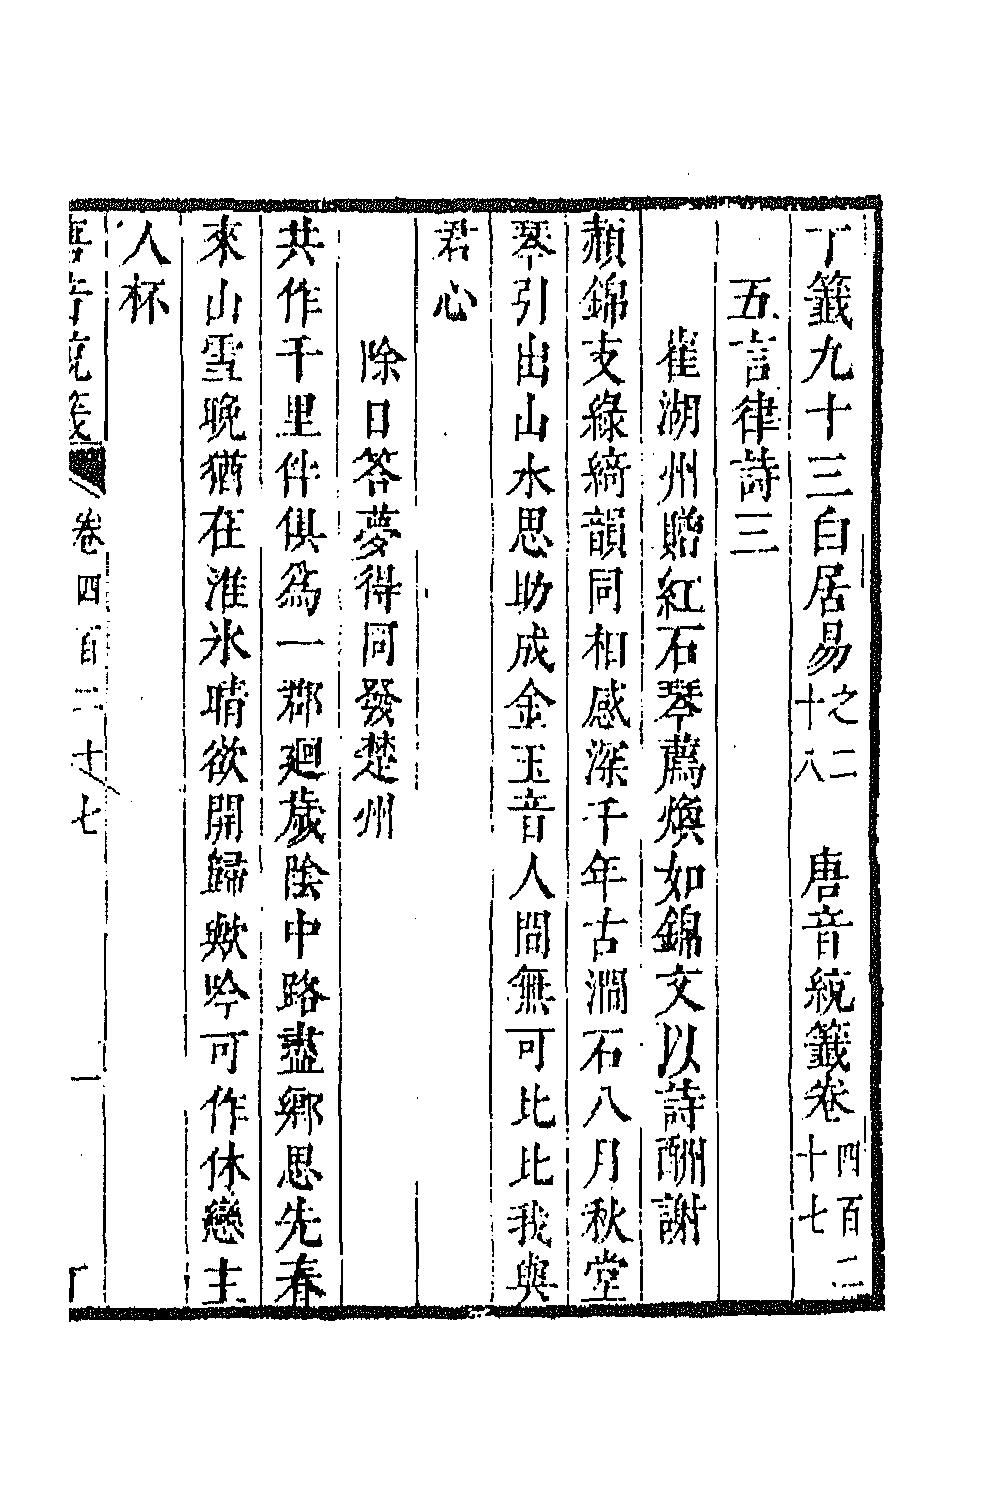 丁籤九十三白居易之二十八　唐音統籤卷四百二十七
五言律詩三
崔湖州贈紅石琴薦煥如錦文以詩酬謝
頳錦支綠綺韻同相感深千年古澗石八月秋堂
琴引出山水思助成金玉音人間無可比比我與
君心
除日答夢得同發楚州
共作千里伴俱爲一郡廻歲陰中路盡鄉思先春
來山雪晚猶在淮氷晴欲開歸歟吟可作休戀主
人杯
唐音統籤　卷四百二十七　一　丁